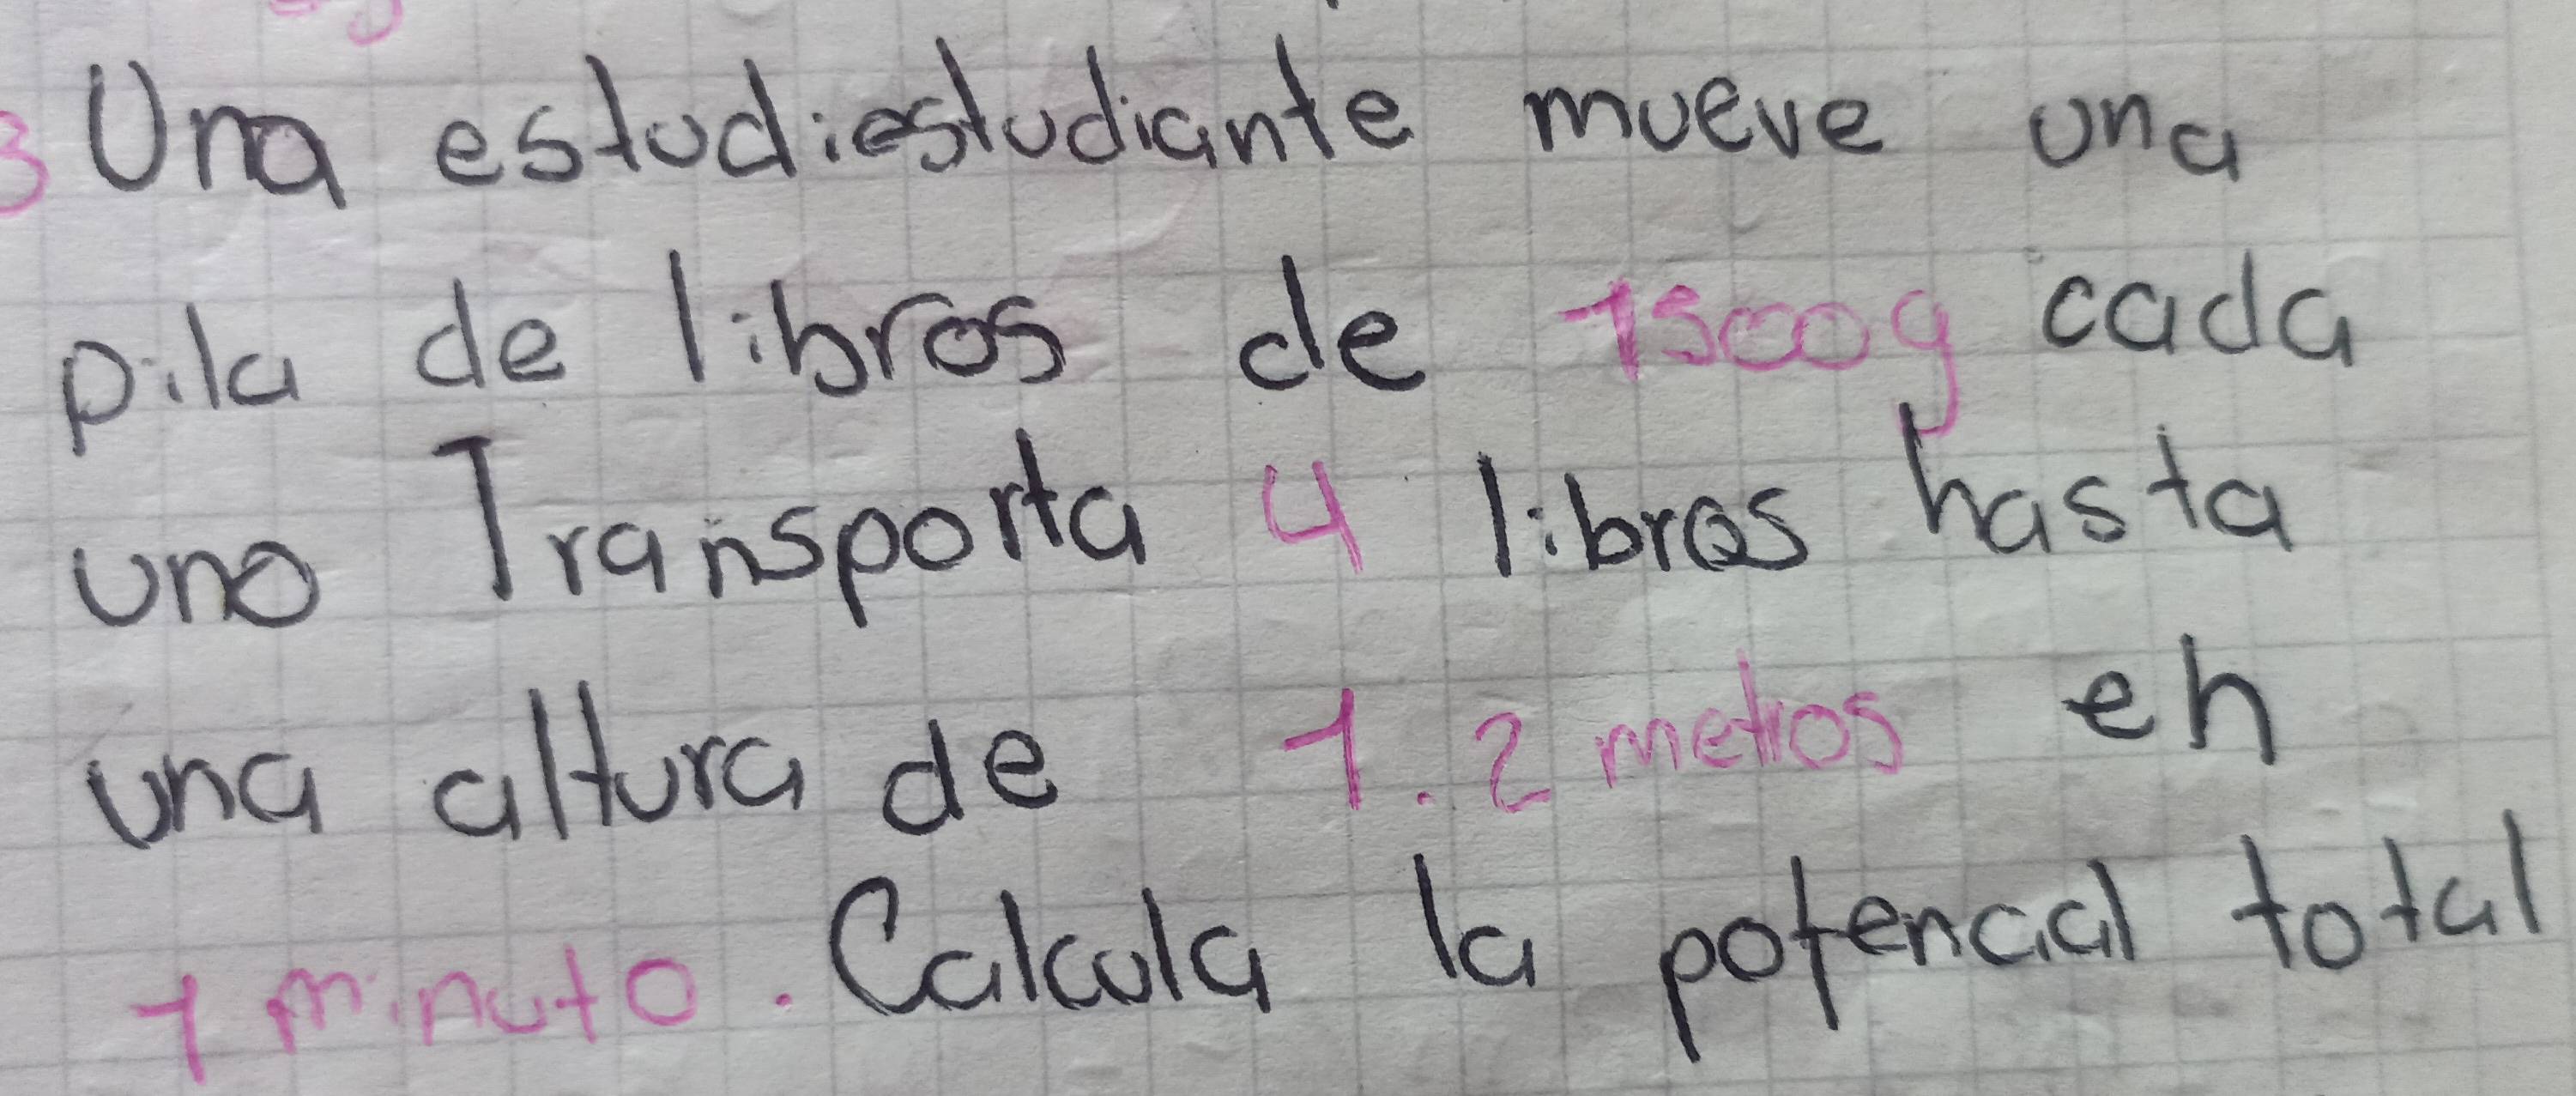 3 Una estudiestudiante mueve una
pila de libros de 1500g cada
uno Transporta 4 libros hasta
una altura de 1.2 metros en
1 minuto. Calcula la potencial total